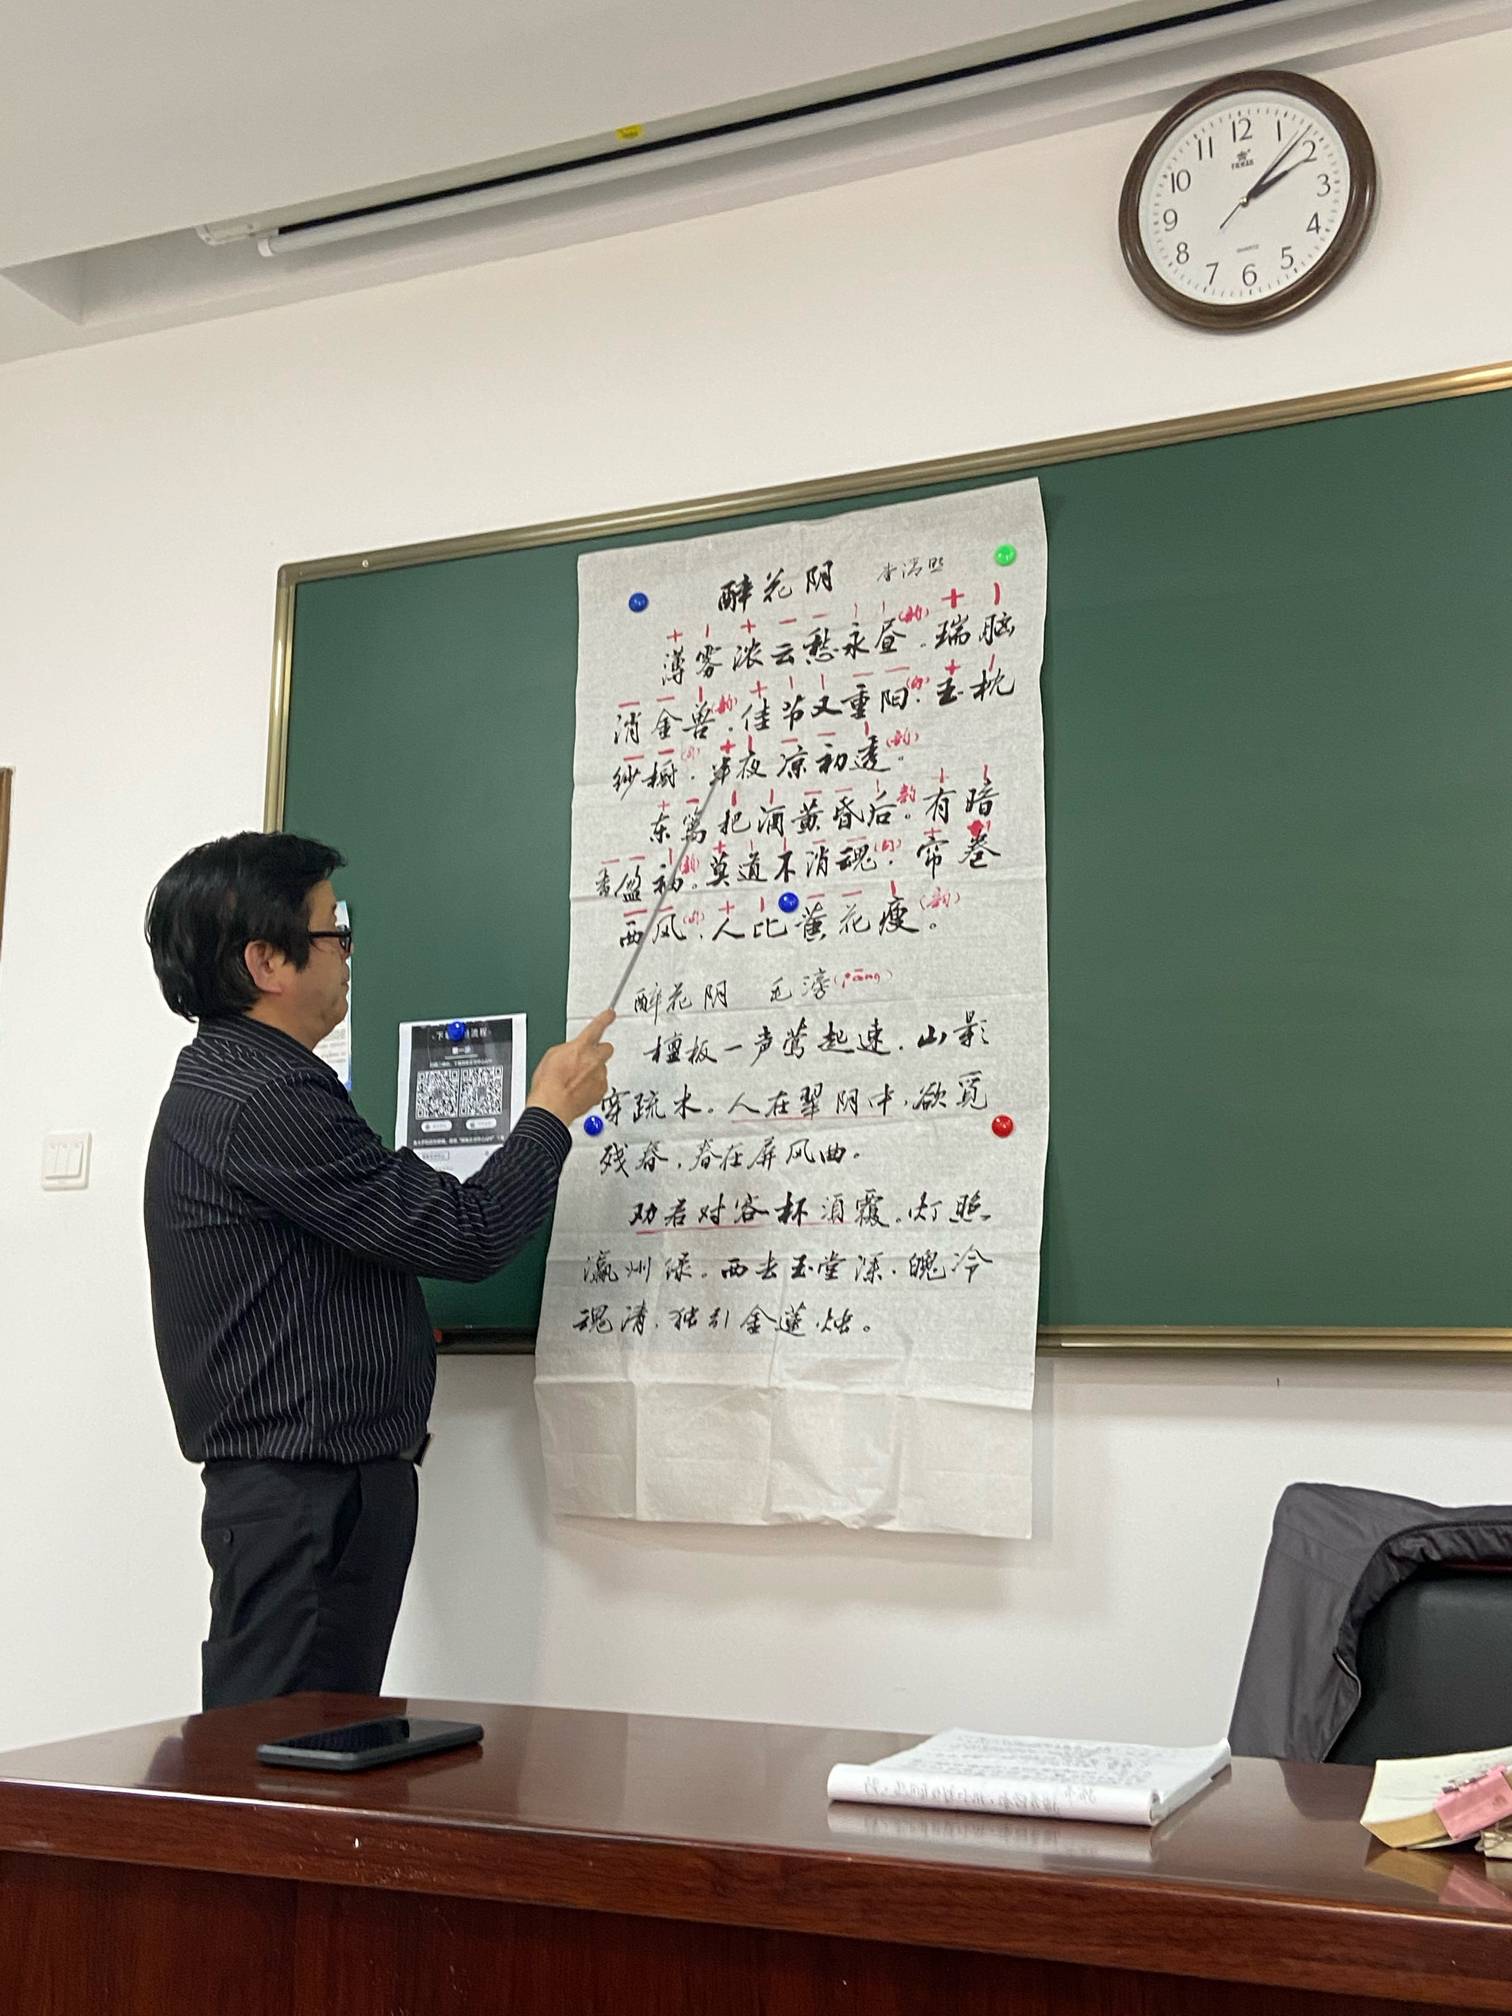 12
1
2
3
4
5
6
7
8
9
10
11
QUARTZ
醉花阴 李清照
薄雾浓云愁永昼(韵)。瑞脑
消金兽(韵)。佳节又重阳(句),玉枕
纱橱(句),半夜凉初透(韵)。
东篱把酒黄昏后韵。有暗
香盈袖(韵)。莫道不消魂(句),帘卷
西风(句),人比黄花瘦(韵)。
醉花阴 毛滂(pāng)
檀板一声莺起速,山影
穿疏木。人在翠阴中,欲觅
残春,春在屏风曲。
劝君对客杯须覆。灯照
瀛州绿。西去玉堂深,魄冷
魂清,独引金莲烛。
第一步